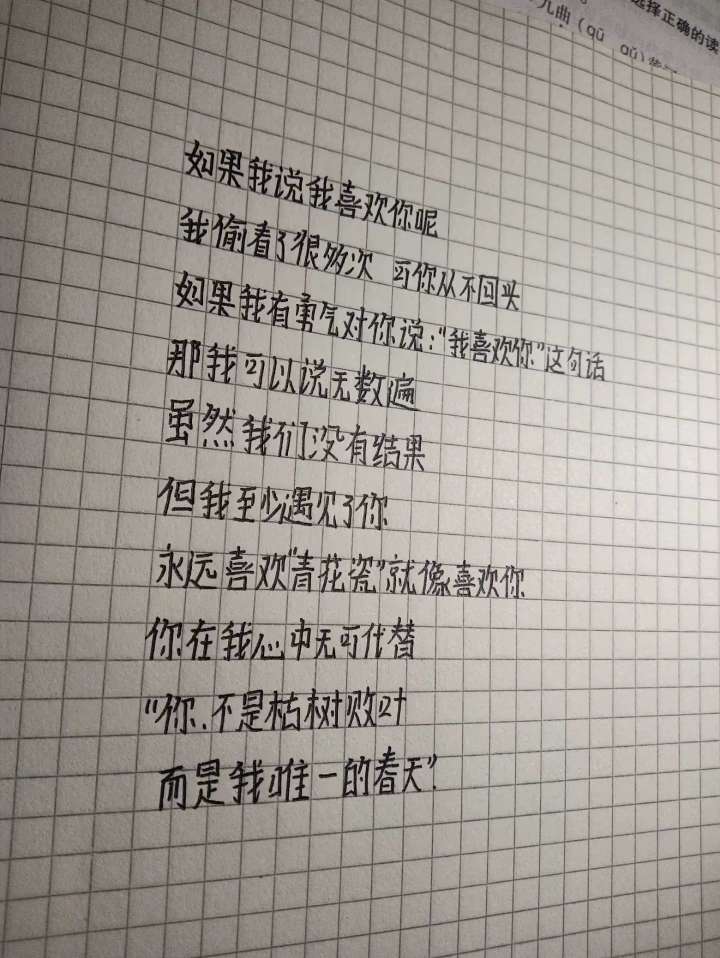 选择正确的读
九曲(qū qǔ)
如果我说我喜欢你呢
我偷看了很多次 可你从不回头
如果我有勇气对你说:"我喜欢你"这句话
那我可以说无数遍
虽然我们没有结果
但我至少遇见了你
永远喜欢"青花瓷"就像喜欢你
你在我心中无可代替
"你、不是枯树败叶
而是我唯一的春天"